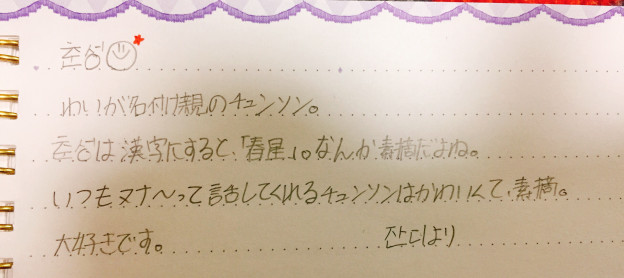 춘성
わいが名付け親のチュンソン。
춘성は漢字にすると、「春星」。なんか素摘だよね。
いつもヌナ〜って話してくれるチュンソンはかわいくて、素摘。
大好きです。
잔디より